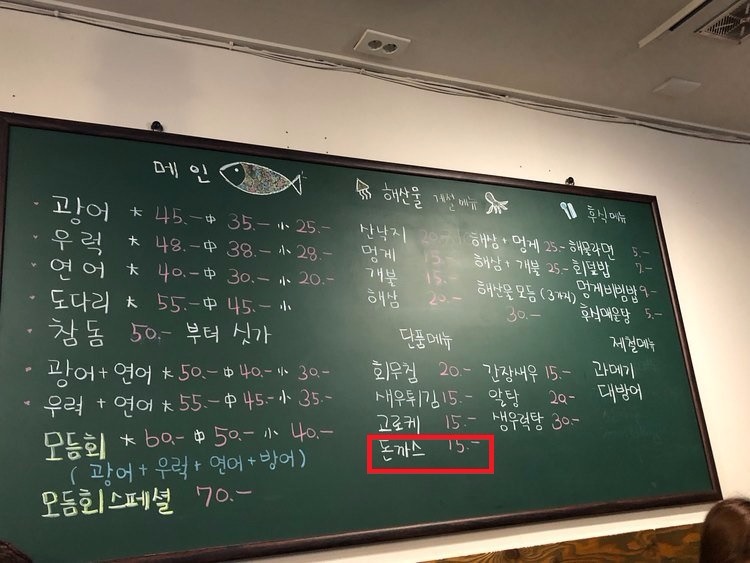 메인
광어 大 45.- 中 35.- 小 25.-
우럭 大 48.- 中 38.- 小 28.-
연어 大 40.- 中 30.- 小 20.-
도다리 大 55.- 中 45.- 小
참돔 50.- 부터 싯가
광어+연어 大 50.- 中 40.- 小 30.-
우력 + 연어 大 55.- 中 45.- 小 35.-
모듬회 大 60.- 中 50.- 小 40.-
(광어+우럭+연어+방어)
모듬회스페셜 70.-
해산물 계절메뉴
산낙지 20.-
멍게 15.-
개불 15.-
해삼 20.-
해삼+멍게 25.-
해삼+개불 25.-
해산물모듬 (3가지)
30.-
후식메뉴
해물라면 5.-
회덮밥 7.-
멍게비빔밥 9.-
후식매운탕 5.-
단품메뉴
회무침 20.-
새우튀김 15.-
고로케 15.-
돈까스 15.-
간장새우 15.-
알탕 20.-
새우럭탕 30.-
제철메뉴
과메기
대방어